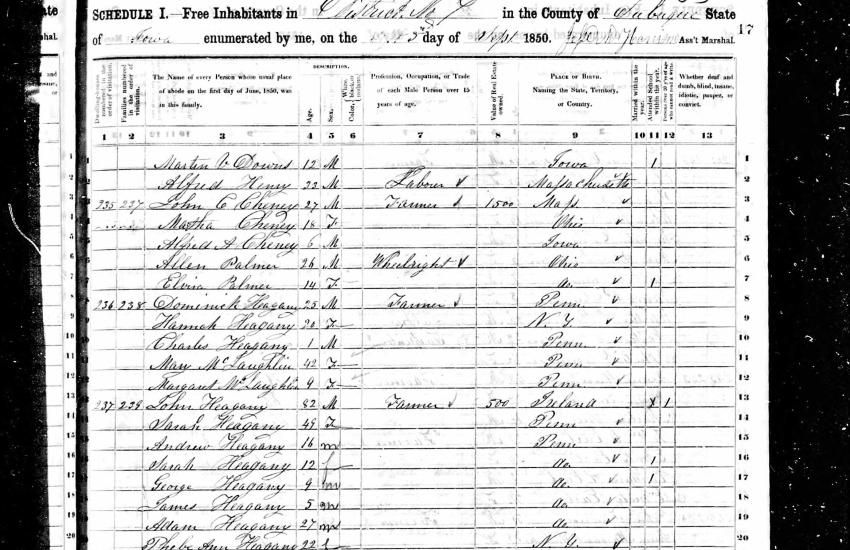 SCHEDULE I.—Free Inhabitants in District No 7 in the County of Dubuque State
of Iowa enumerated by me, on the 5th day of Sept 1850. Ass't Marshal. 17
DESCRIPTION.
Dwelling-houses numbered in the order of visitation. Families numbered in the order of visitation. The Name of every Person whose usual place of abode on the first day of June, 1850, was in this family. Age. Sex. Color, White, black, or mulatto. Profession, Occupation, or Trade of each Male Person over 15 years of age. Value of Real Estate owned. PLACE OF BIRTH. Naming the State, Territory, or Country. Married within the year. Attended School within the year. Whether deaf and dumb, blind, insane, idiotic, pauper, or convict.
1 2 3 4 5 6 7 8 9 10 11 12 13
1 Martin V Downs 12 M Iowa 1 1
2 Alfred Henry 22 M Labour Massachusetts 2
3 235 237 John C Cheney 27 M Farmer 1500 Mass 3
4 Martha Cheney 18 F Ohio 4
5 Alfred A Cheney 6 M Iowa 5
6 Allen Palmer 26 M Wheelright Ohio 6
7 Elvira Palmer 14 F do 1 7
8 236 238 Dominick Heagany 25 M Farmer Penn 8
9 Hannah Heagany 20 F N.Y. 9
10 Charles Heagany 1 M Penn 10
11 Mary McLaughlin 42 F Penn 11
12 Margaret McLaughlin 9 F Penn 12
13 237 239 John Heagany 82 M Farmer 500 Ireland X 1 13
14 Sarah Heagany 49 F Penn 14
15 Andrew Heagany 16 m Penn 15
16 Sarah Heagany 12 f do 1 16
17 George Heagany 9 m do 1 17
18 James Heagany 5 m do 18
19 Adam Heagany 27 m do 19
20 Phebe Ann Heagany 22 f N.Y. 20